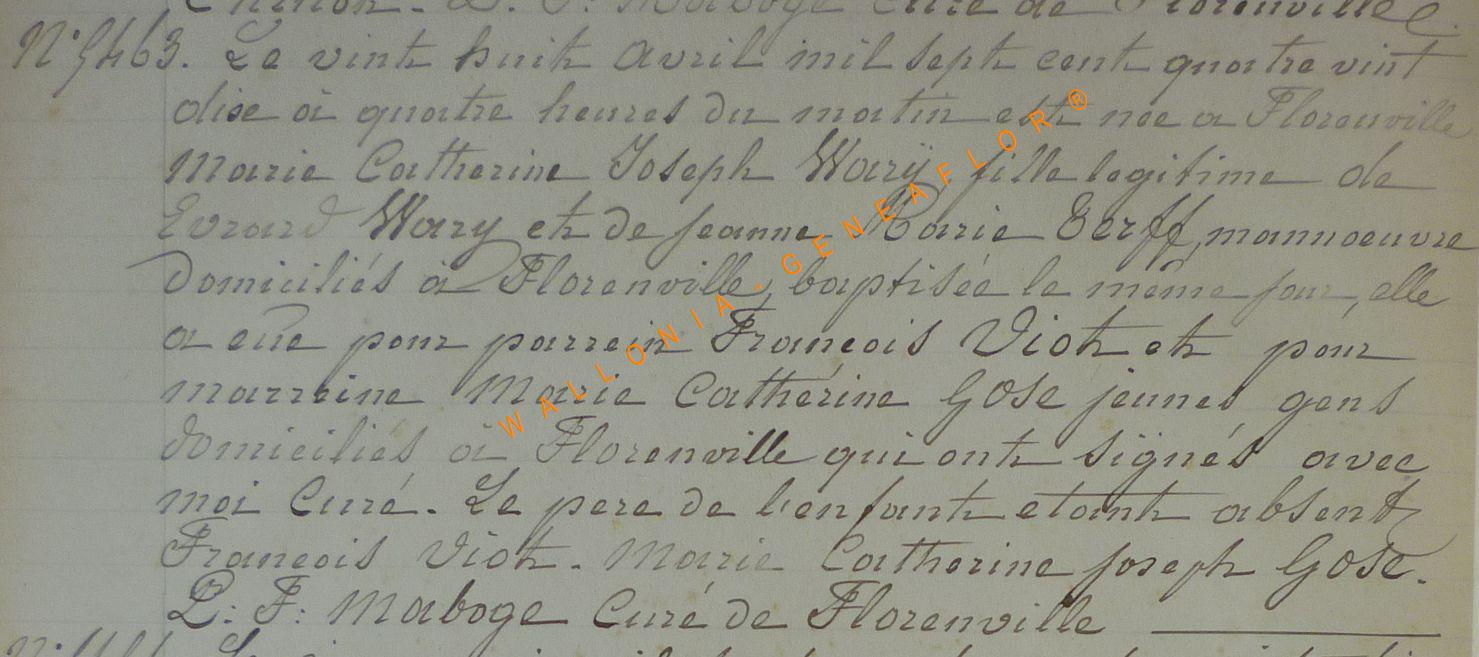 Maboge curé de Florenville
N° 9463. Le vint huit avril mil sept cent quatre vint
dise à quatre heures du matin est née a Florenville
Marie Catherine Joseph Warÿ fille legitime de
Evrard Wary et de jeanne Marie Eerff, mannoeuvre
domiciliés à Florenville, baptisée le même jour, elle
a eüe pour parrein François Viot et pour
marreine Marie Catherine Gose jeunes gens
domiciliés à Florenville qui ont signés avec
moi Curé. Le pere de l'enfant etant absent
François Viot. Marie Catherine joseph Gose.
P: F: Maboge Curé de Florenville
WALLONIA.GENEAFLOR®